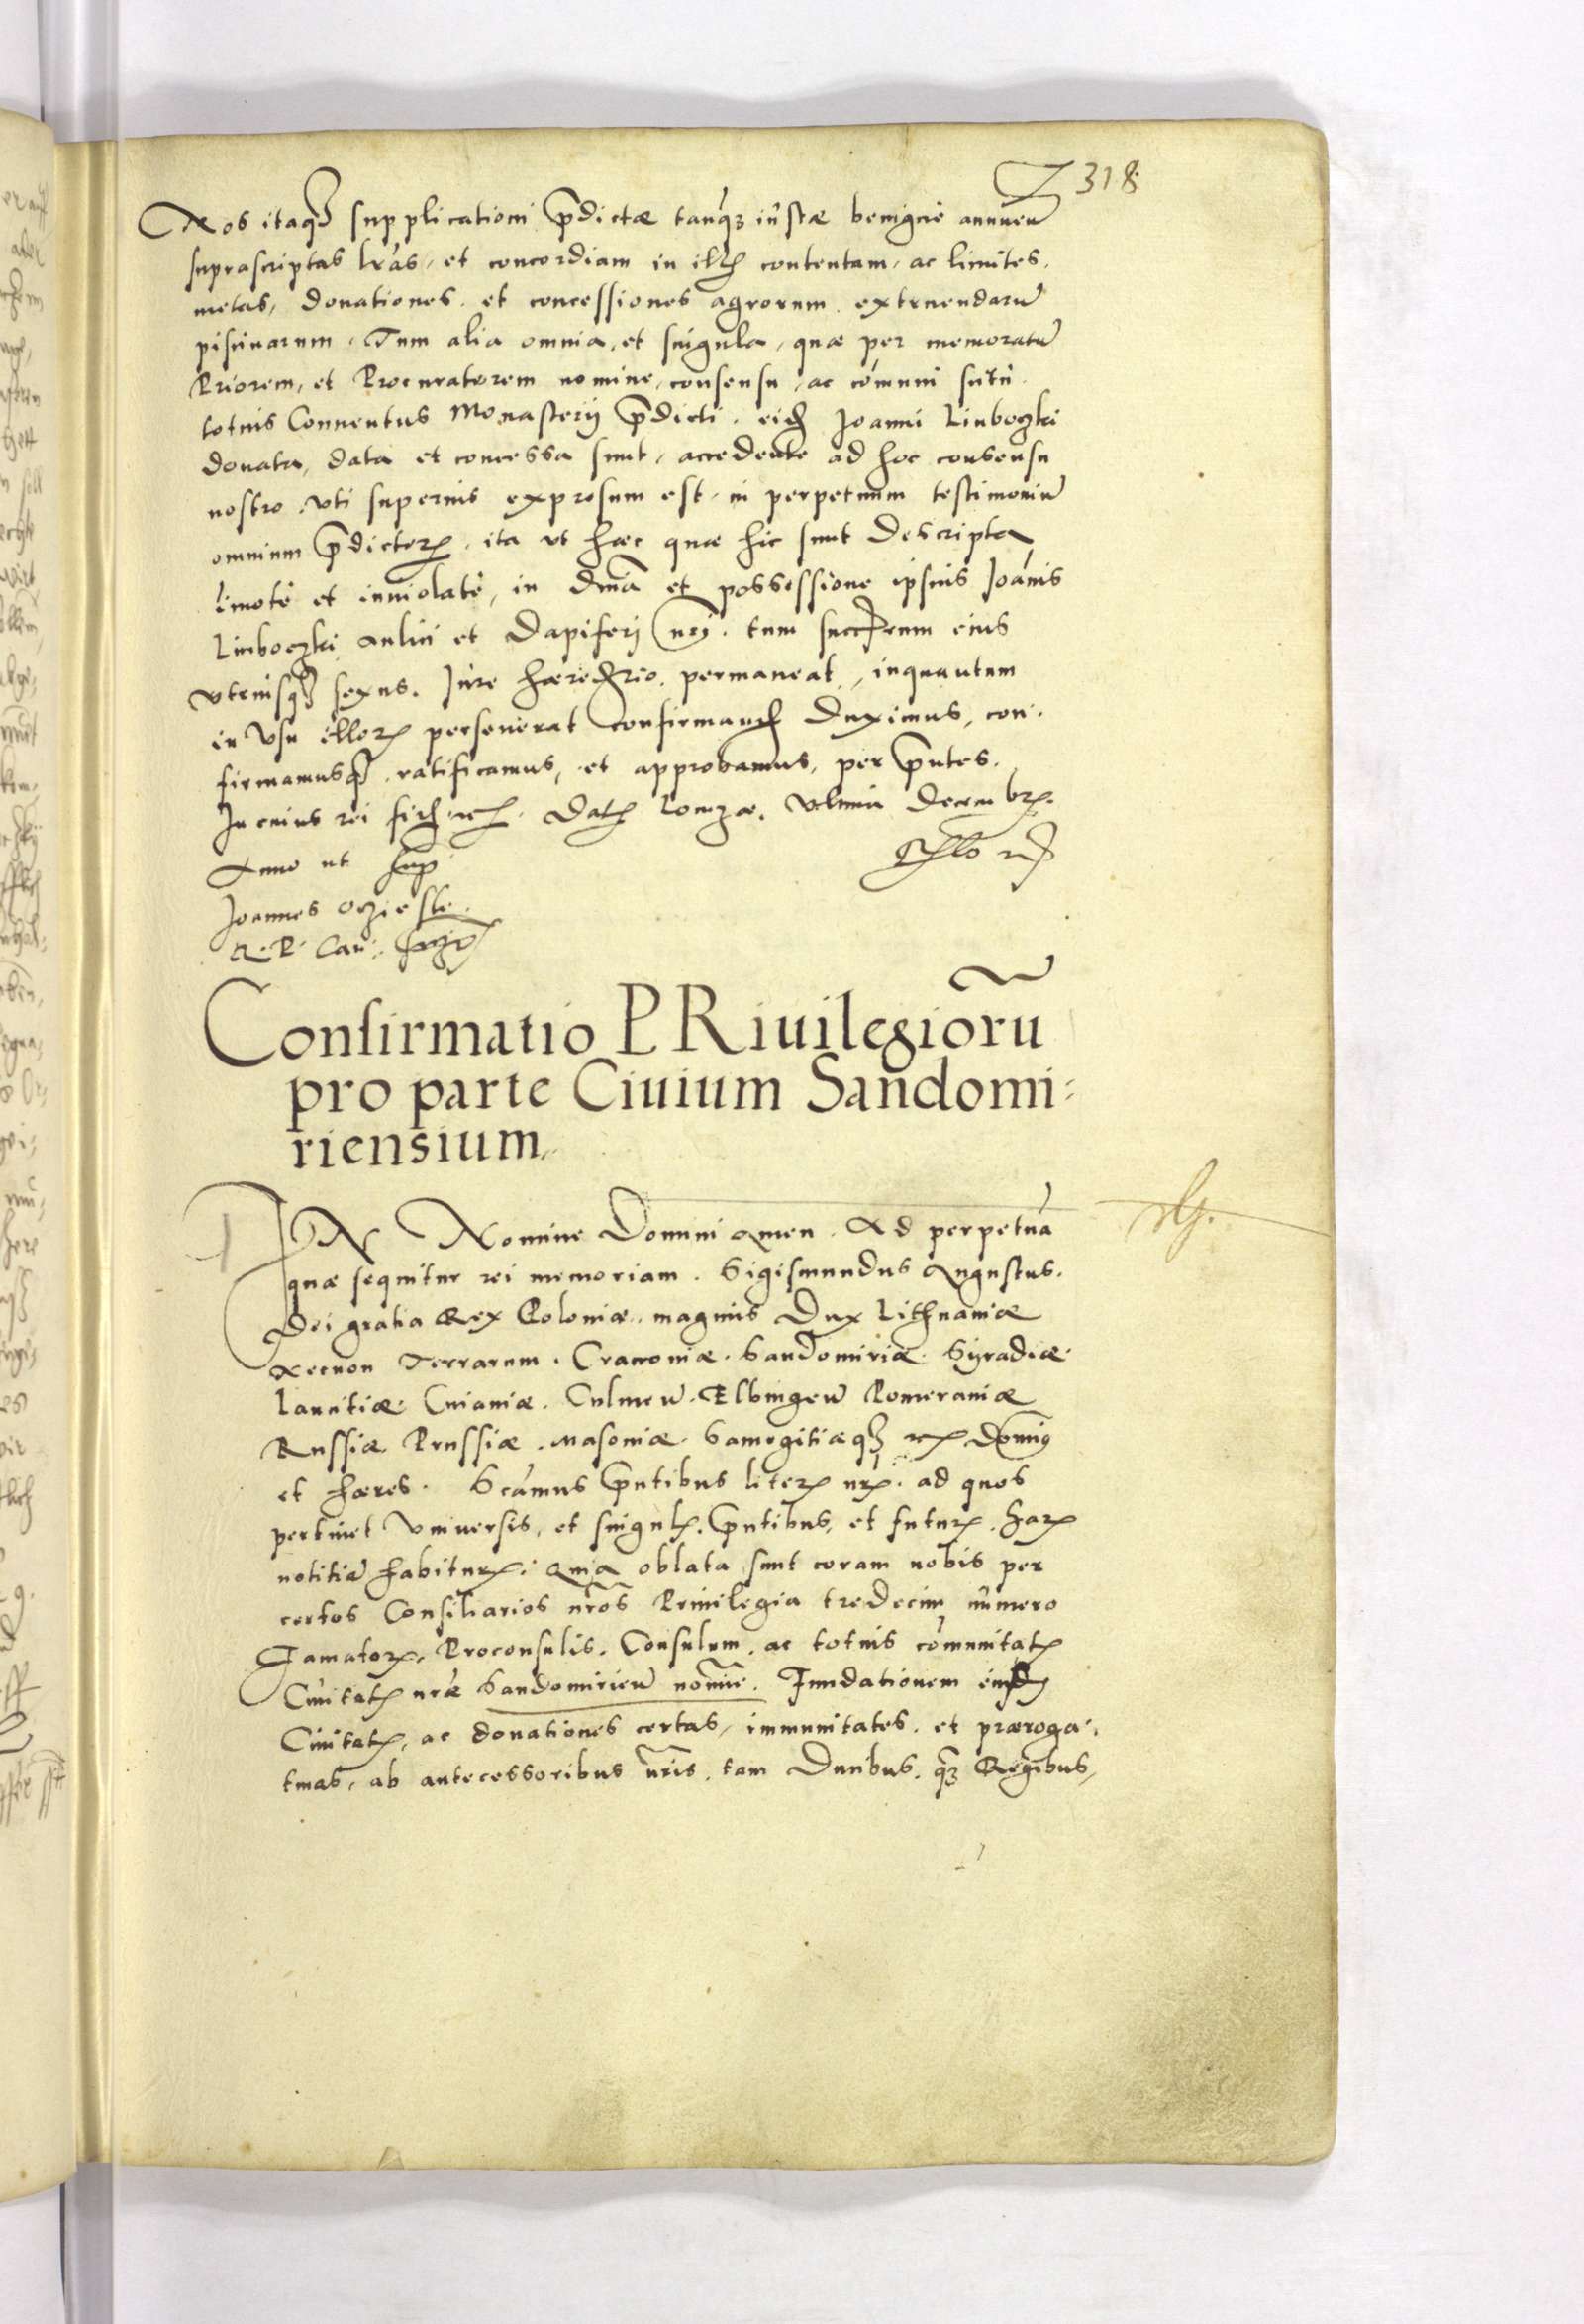 318
Nos itaq3 supplicationi p̄dictæ tanq̃3 iustæ benigne annuen̄
suprascriptas lr̃as, et concordiam in illis contentam, ac limites,
metas, donationes et concessiones agrorum extruendarū
piscinarum, Tum alia omnia, et singula, quæ per memoratū
Priorem, et Procuratorem nomine, consensu, ac cõmuni
totius Conuentus Monasterij p̄dicti. eid Joanni Liuboczki
donata, data et concessa sunt, accedente ad hoc consensu
nostro. vti superius expressum est, in perpetuum testimoniū
omnium p̄dictor̃, ita vt hæc quæ hic sunt descripta
imote et inuiolate, in et possessione ipsius Joãnis
Liuboczki aulici et Dapiferi nr̃i. tum succr̃um eius
vtriusq3 sexus. Jure hæred̃rio. permaneat, inquantum
in vsu illor̃ perseuerat confirmand duximus, con-
firmamusq3 ratificamus, et approbamus, per p̄ntes.
In cuius rei fid etc. Dat Lomzæ. vltima Decembr̃.
Anno ut sup
Joannes Oczieski
R. P. Can:
Confirmatio PRiuilegiorū
pro parte Ciuium Sandomi=
riensium.
IN Nomine Domini Amen. Ad perpetuã
quæ sequitur rei memoriam. Sigismundus Augustus.
Dei gratia Rex Poloniæ. magnus Dux Lithuaniæ
Necnon Terrarum. Cracouiæ. Sandomiriæ. Syradiæ.
Lancitiæ. Cuiauiæ. Culmeñ. Elbingeñ Pomeraniæ
Russiæ Prussiæ. Masouiæ. Samogitiæq3 etc Doming
et hæres. S̃cãmus p̄ntibus liter̃ nr̃. ad quos
pertinet vniuersis, et singul. p̄ntibus, et futur̃. har̃
notitiā habitur̃. Quia oblata sunt coram nobis per
certos Consiliarios nr̃os Priuilegia tredecim numero
Famator̃. Proconsulis. Consulum. ac totius cõmunitat
Ciuitat nr̃æ Sandomirieñ nomine. Fundationem
Ciuitat, ac donationes certas, immunitates. et præroga-
tiuas, ab antecessoribus nr̃is. tam Ducibus. q̃3 Regibus,